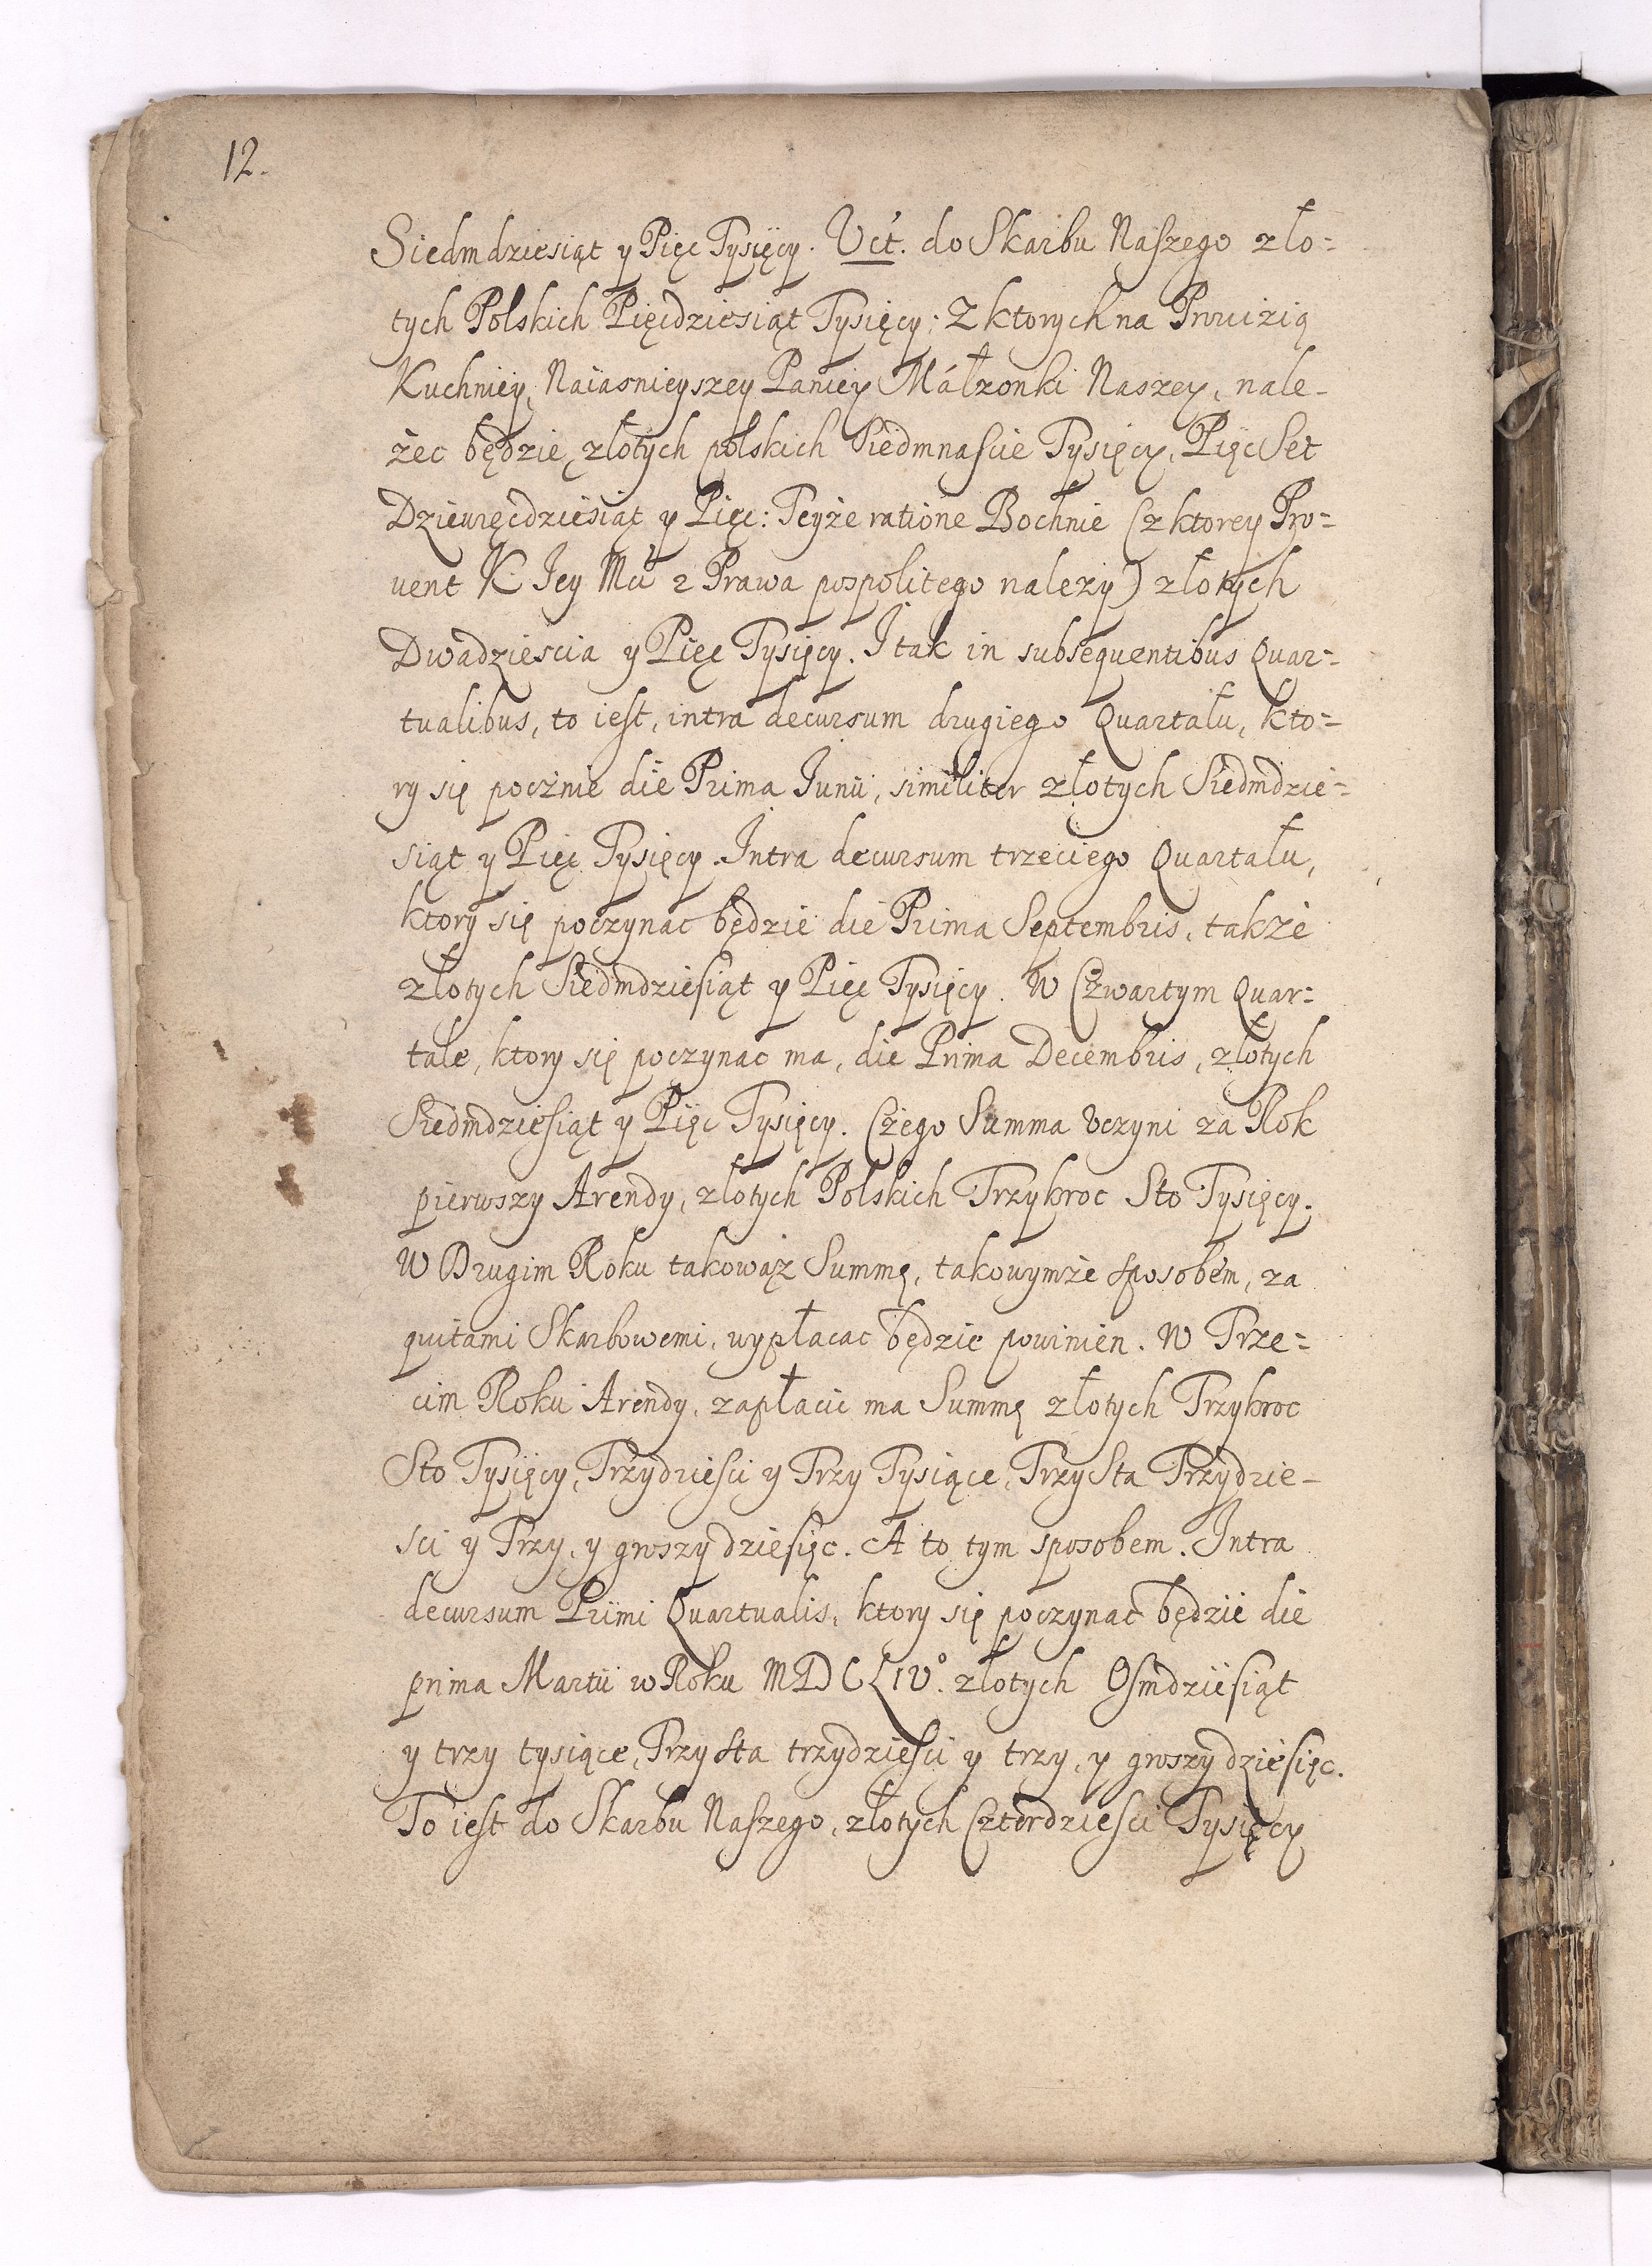 12.
Siedmdziesiąt y Pięc Tysięcy. Vct. do Skarbu Naszego zło=
tych Polskich Pięcdziesiąt Tysięcy; Z ktorych na Prowizią
Kuchniey, Naiasnieyszey Paniey Małzonki Naszey, nale-
żec będzie, złotych polskich Siedmnascie Tysięcy, Pięc Set
Dziewięcdziesiąt y Pięc: Teyże ratione Bochnie (z ktorey Pro=
vent K. Jey Mci z Prawa pospolitego nalezy) złotych
Dwadziescia y Pięc Tysięcy. I tak in subsequentibus Quar=
tualibus, to iest, intra decursum drugiego Quartału, kto=
ry się pocżnie die Prima Junii, similiter złotych Siedmdzie=
siąt y Pięc Tysięcy. Intra decursum trzeciego Quartału,
ktory się poczynac będzie die Prima Septembris, także
złotych Siedmdziesiąt y Pięc Tysięcy. W Czwartym Quar=
tale, ktory się poczynac ma, die Prima Decembris, złotych
Siedmdziesiąt y Pięc Tysięcy. Czego Summa Vczyni za Rok
pierwszy Arendy, złotych Polskich Trzykroc Sto Tysięcy.
W Drugim Roku takowąż Summę, takowymże sposobem, za
quitami Skarbowemi, wypłacac będzie powinien. W Trze=
cim Roku Arendy, zapłacic ma Summę złotych Trzykroc
Sto Tysięcy, Trzydziesci y Trzy Tysiące, Trzy Sta Trzydzie-
sci y Trzy, y groszy dziesięc. A to tym sposobem. Intra
decursum Primi Quartualis, ktory się poczynac będzie die
prima Martii w Roku MDCLIVo. złotych Osmdziesiąt
y trzy tysiące, Trzy sta trzydziesci y trzy, y groszy dziesięc.
To iest do Skarbu Naszego, złotych Czterdziesci Tysięcy